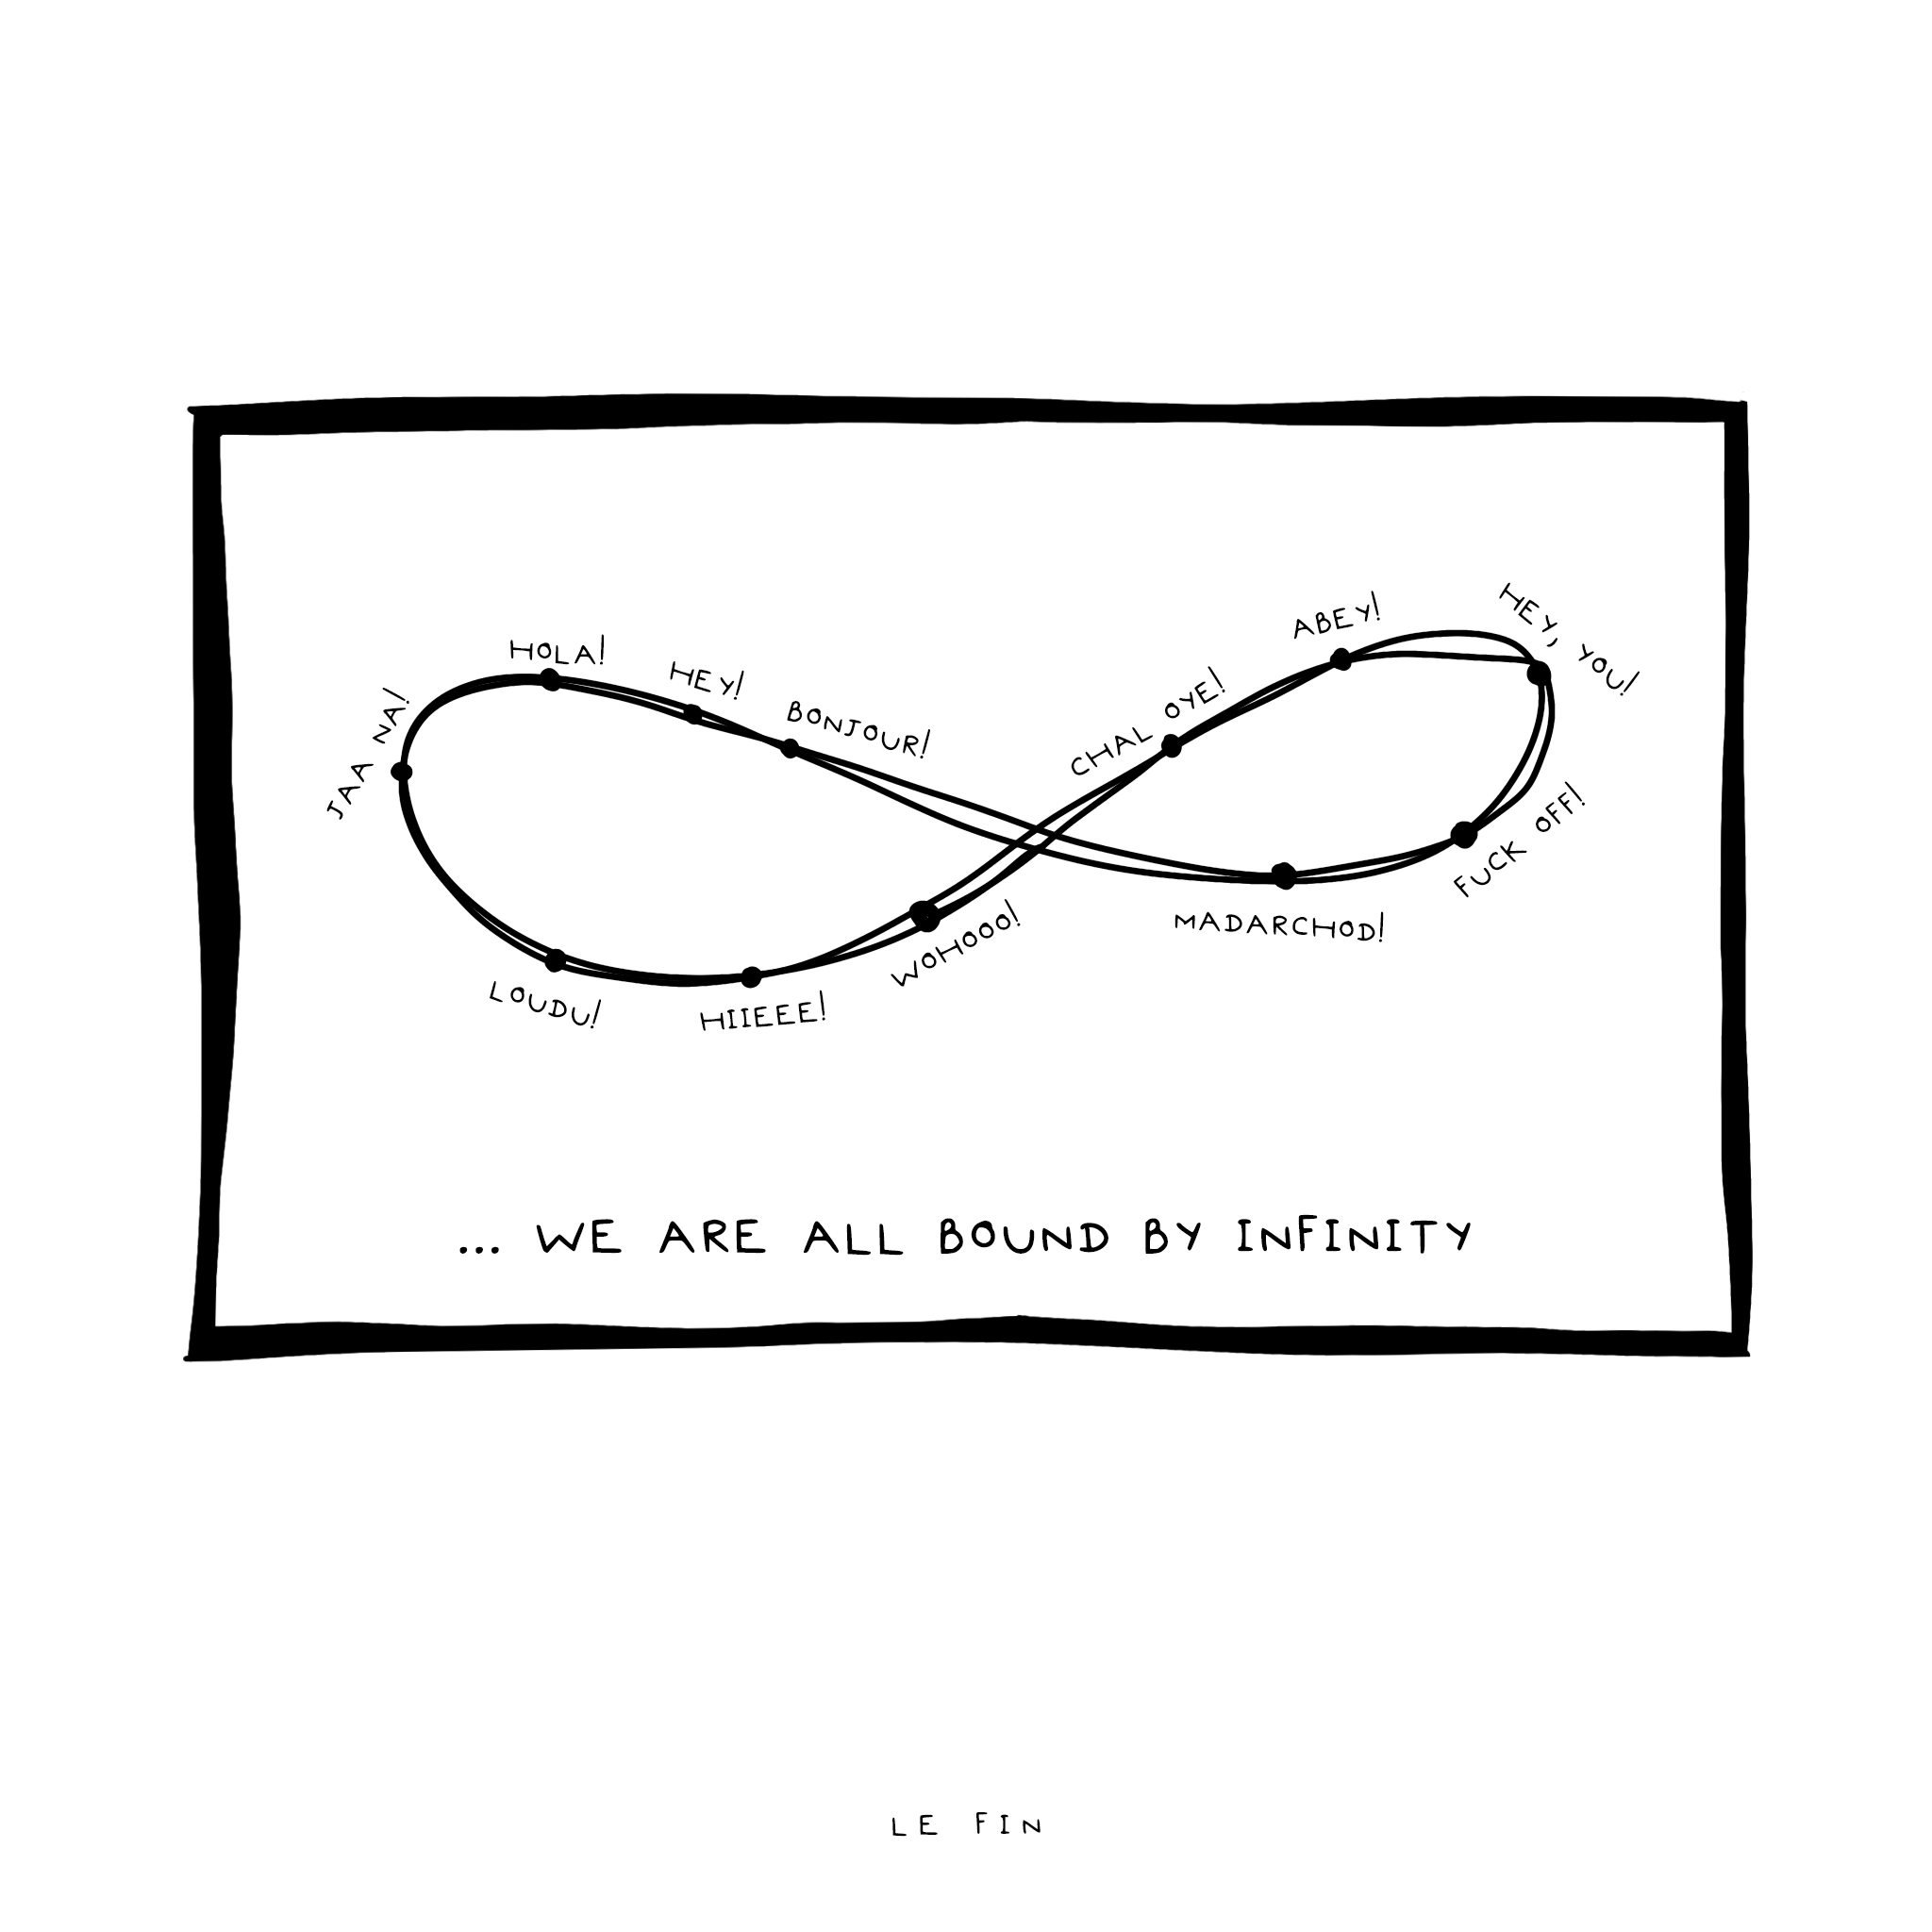 HOLA!
HEY!
BONJOUR!
JAA NA!
CHAL OYE!
ABEY!
HEY, YOU!
FUCK OFF!
MADARCHOD!
WOHOOO!
HIIEEE!
LOUDU!
... WE ARE ALL BOUND BY INFINITY
LE FIN